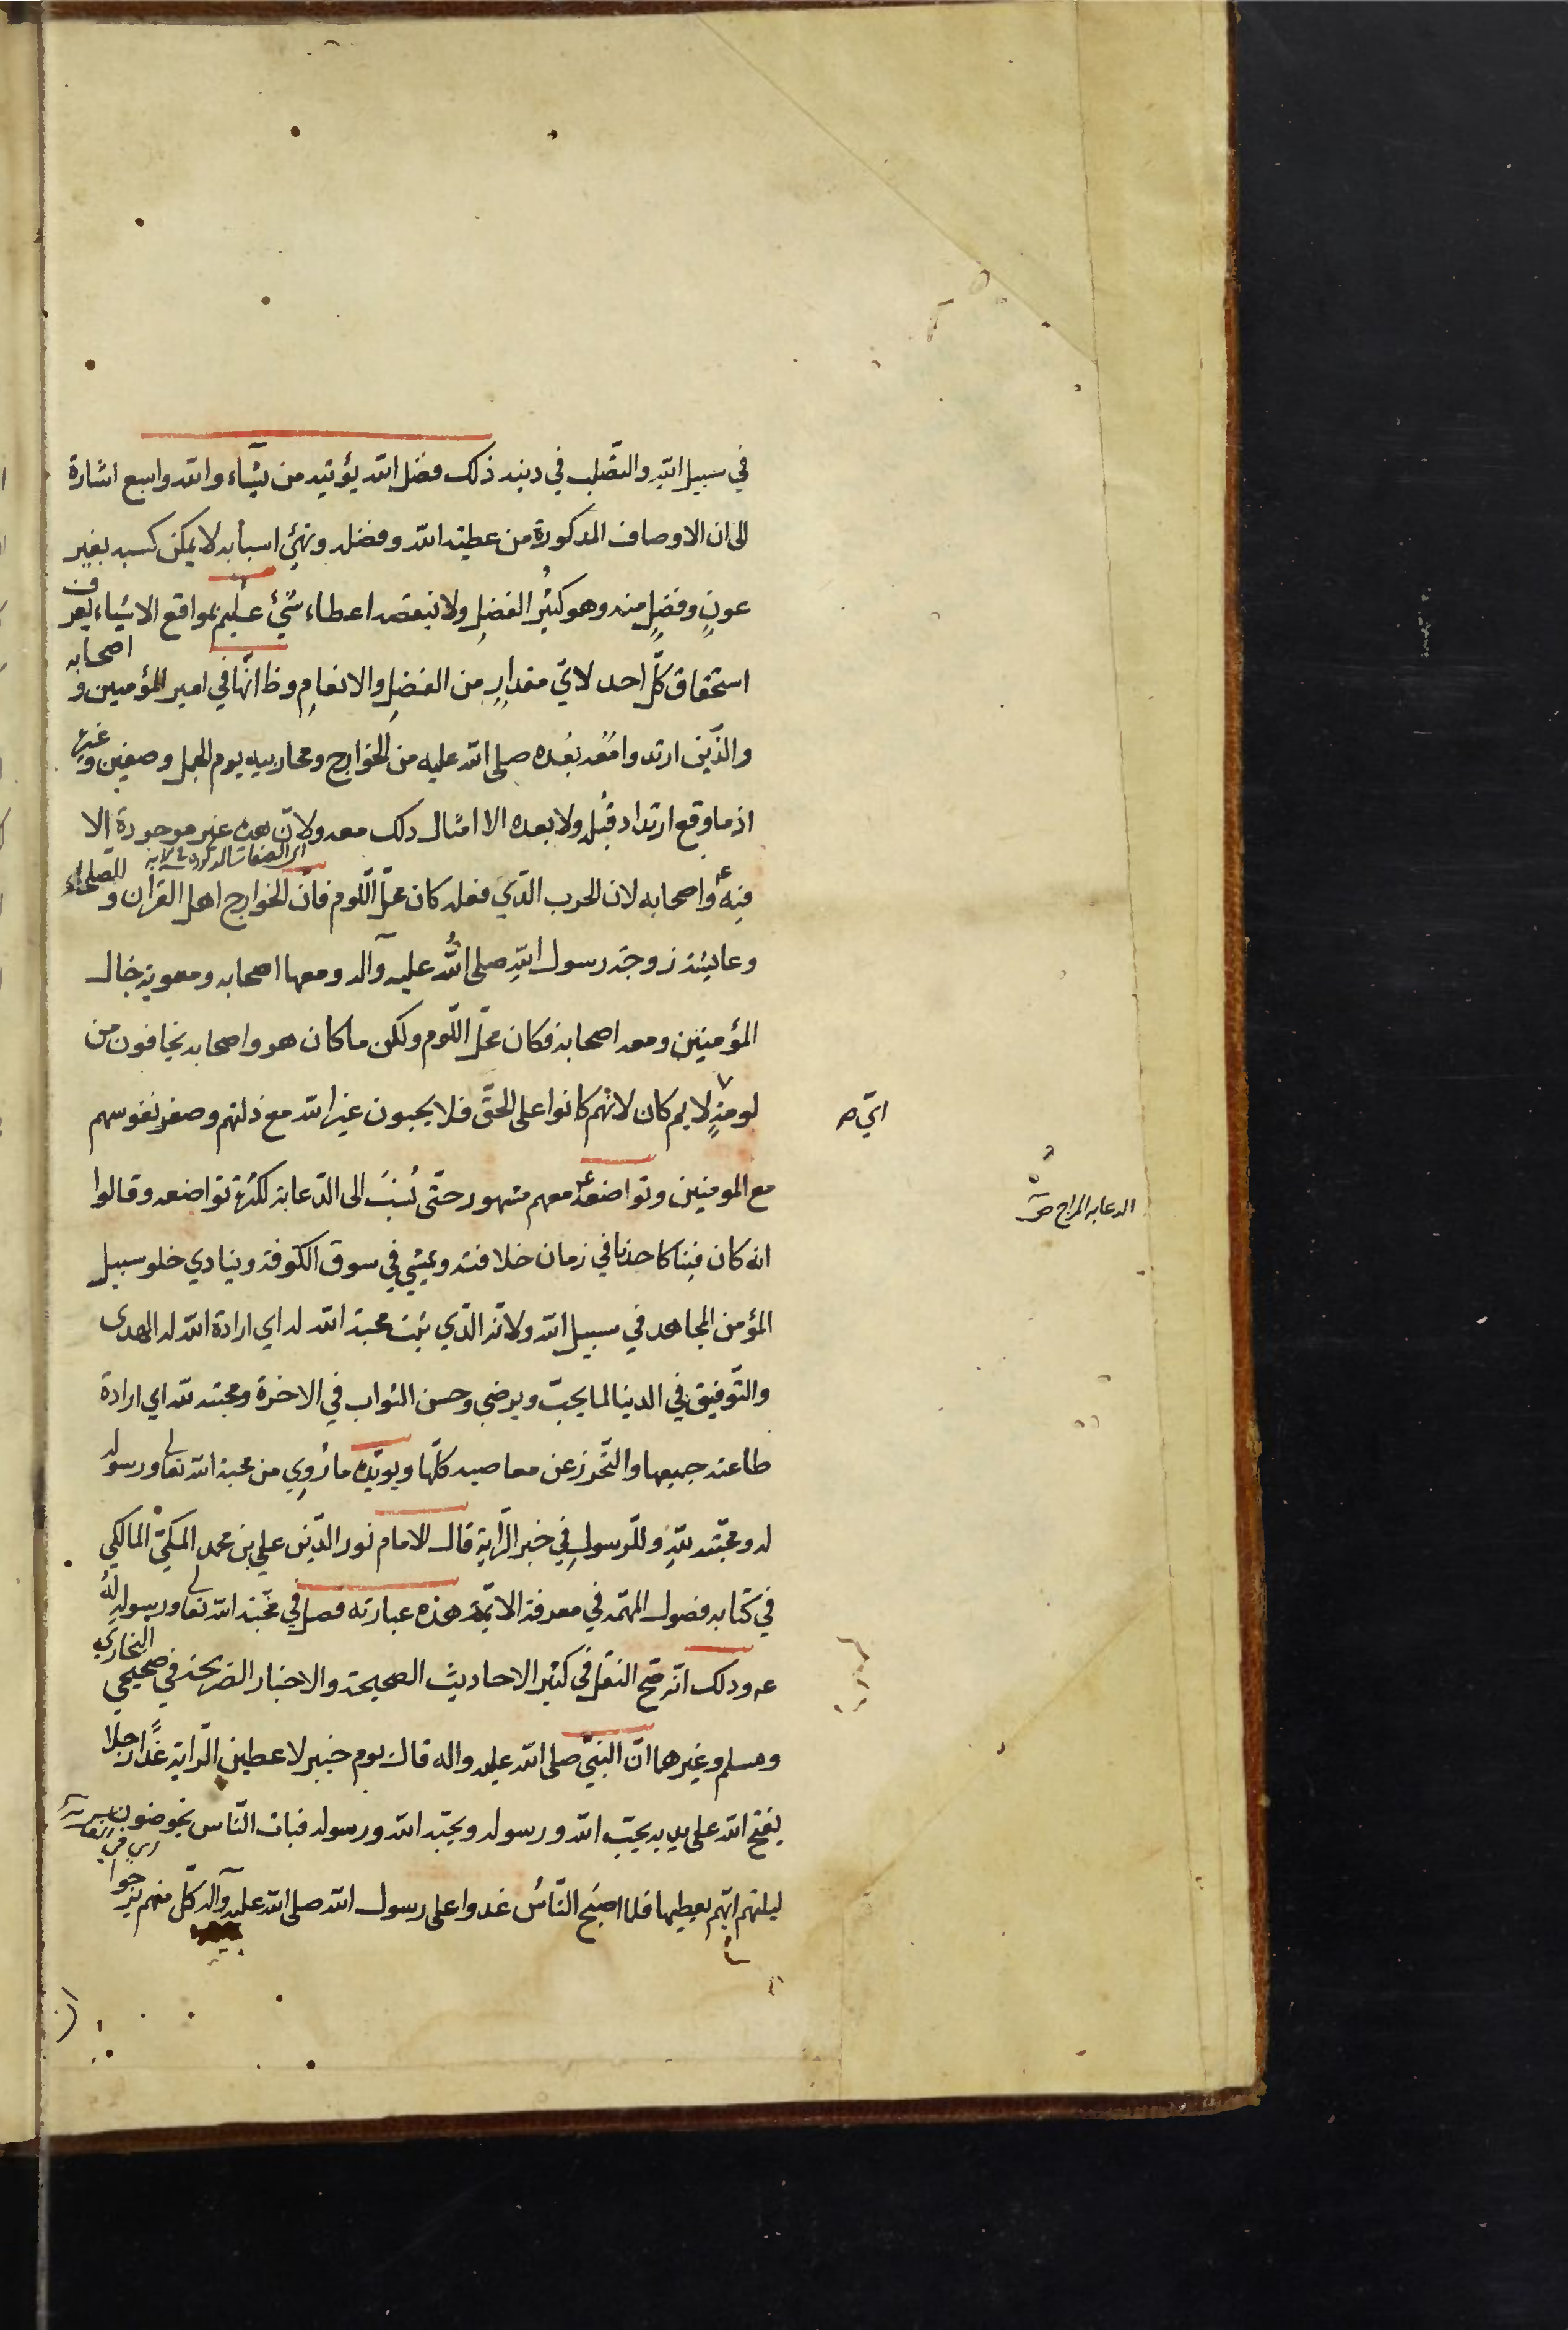 في سبيل اللّه والتصّلب في دينه ذلك فضل اللّه يؤتيه من يشاء واللّه واسع اشارة
الى ان الاوصاف المذكورة من عطية اللّه وفضله وتهيّئ اسبابه لا يمكن كسبه بغير
عونٍ وفضلٍ منه وهو كثير الفضلِ ولا ينقصه اعطاء شيئ عليم بمواقع الاشياء يعرف
استحقاق كلّ احد لايّ مقدارٍ من الفضلِ والانعامِ وظ انّها في امير المؤمنين و اصحابه
والذّين ارتدوا فقد بعُده صلى اللّه عليه من الخوارج ومحاربيه يوم الجمل وصفين وغيره
اذ ما وقع ارتداد قبله ولا بعده الا امثال ذلك معه ولانّ هذه غير موجودة الا
اى الصفات المذكورة فى الاية
فيه ع واصحابه لان الحرب الذّي فعله كان محلّ اللّوم فانّ الخوارج اهل القران و الصلحاء
وعايشة زوجة رسول اللّهِ صلى اللّه عليه وآله ومعها اصحابه ومعوية خال
المؤمنين ومعه اصحابه فكان محلّ اللّوم ولكن ما كان هو واصحابه يخافون من
لومةٍ لايم كان لانهم كانوا على الحقّ فلا يحبون غير اللّه مع ذلتهم وصغر نفوسهم
ايّ ص
مع المومنين وتواضعه ع معهم مشهور حتّى نُسِبَ الى الدّعابة لكثرة تواضعه وقالوا
الدعابه المزاح ص
انه كان فينا كاحدنا في زمان خلافته ويمشي في سوق الكوفة وينادي خلو سبيل
المؤمن المجاهد في سبيل اللّه ولانّه الذّي ثبت محبة اللّه له اي ارادة اللّه له الهدى
والتّوفيق في الدينا لما يحبّ ويرضى وحسن الثواب في الاخرة ومحبته للّه اي ارادة
طاعته جميعها والتّحرز عن معاصيه كلّها ويويّده ما رُوِي من محبة اللّه تعالى ورسوله
له ومحبّته للّهِ وللّرسولِ في خبر الرّاية قال الامام نور الدّين علي بن محمد المكيّ المالكي
في كتابه فصول المهمّة في معرفة الايمّة هذه عبارته فصل في محبّة اللّه تعالى ورسوله لهُ
عه وذلك انّه صح النقل فى كثير الاحاديث الصحيحة والاخبار الصريحة في صحيحي البخاري
ومسلم وغيرهما انّ النبيّ صلى اللّه عليه واله قال يوم خيبر لاعطين الرّاية غدًا رجلا
يفتح اللّه على يديه يحبّ اللّه ورسوله ويحبّه اللّه ورسوله فبات النّاس يخوضون
ليلتهم ايّهم يعطيها فلما اصبَح النّاسُ غدوا على رسول اللّه صلى اللّه عليه وآله كلّ منهم يرجوا